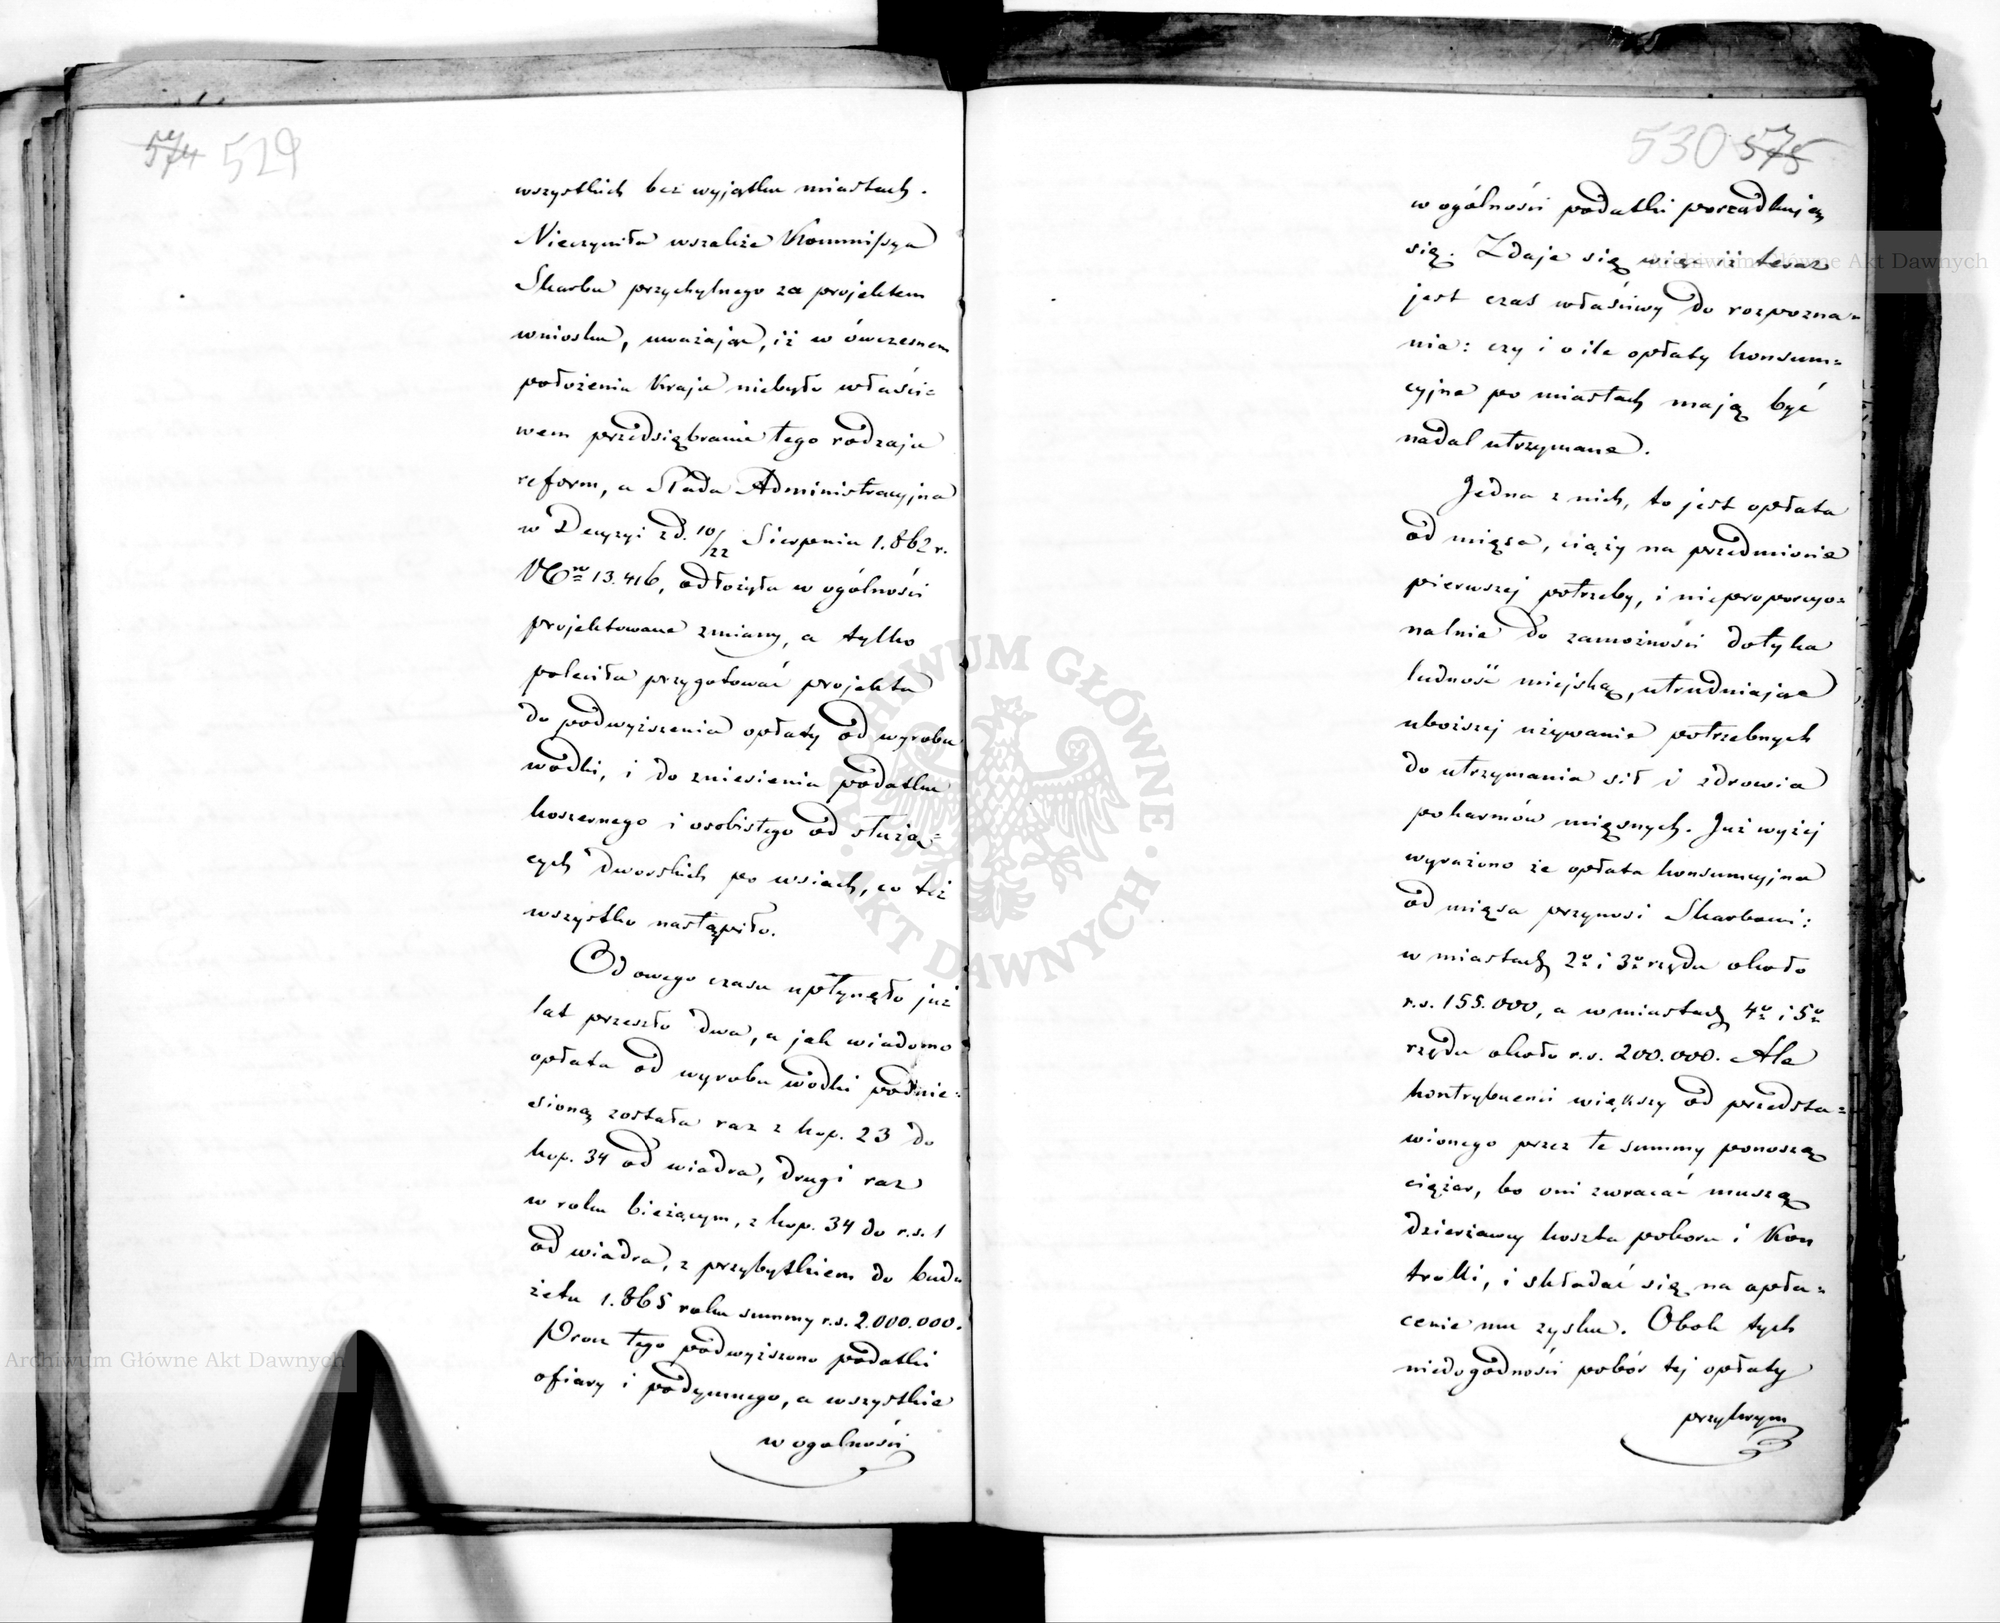 574 529
wszystkich bez wyjątku miastach.
Nieczyniła wszakże Kommissya
Skarbu przychylnego za projektem
wniosku, uważając, iż w ówczesnem
położeniu Kraju niebyło właści=
wem przedsiębranie tego rodzaju
reform, a Rada Administracyjna
w Decyzyi z d. 10/22 Sierpnia 1.862 r.
N° 13.416, odłożyła w ogólności
projektowane zmiany, a tylko
poleciła przygotować projekta
do podwyższenia opłaty od wyrobu
wódki, i do zniesienia podatku
koszernego i osobistego od służą=
cych dworskich po wsiach, co też
wszystko nastąpiło.
Od owego czasu upłynęło już
lat przeszło dwa, a jak wiadomo
opłata od wyrobu wódki podnie=
sioną została raz z kop. 23 do
kop. 34 od wiadra, drugi raz
w roku bieżącym, z kop. 34 do r.s. 1
od wiadra, z przybytkiem do bud
żetu 1.865 roku summy r.s. 2.000.000.
Prócz tego podwyższono podatki
ofiary i podymnego, a wszystkie
w ogolności
530 575
w ogólności podatki porządkują
się. Zdaje się więc iż teraz
jest czas właściwy do rozpozna=
nia: czy i o ile opłaty konsum=
cyjne po miastach mają być
nadal utrzymane.
Jedna z nich, to jest opłata
od mięsa, ciąży na przedmiocie
pierwszej potrzeby, i nieproporcyo=
nalnie do zamożności dotyka
ludność miejską, utrudniając
uboższej używanie potrzebnych
do utrzymania sił i zdrowia
pokarmów mięsnych. Już wyżej
wyrażono że opłata konsumcyjna
od mięsa przynosi Skarbowi:
w miastach 2° i 3° rzędu około
r.s. 155.000, a w miastach 4° i 5°
rzędu około r.s. 200.000. Ale
kontrybuenci większy od przedsta=
wionego przez te summy ponoszą
ciężar, bo oni zwracać muszą
dzierżawcy koszta poboru i Kon
trolli, i składać się na opła=
cenie mu zysku. Obok tych
niedogodności pobór tej opłaty
przykrym
Archiwum Główne Akt Dawnych
Archiwum Główne Akt Dawnych
ARCHIWUM GŁÓWNE
AKT DAWNYCH